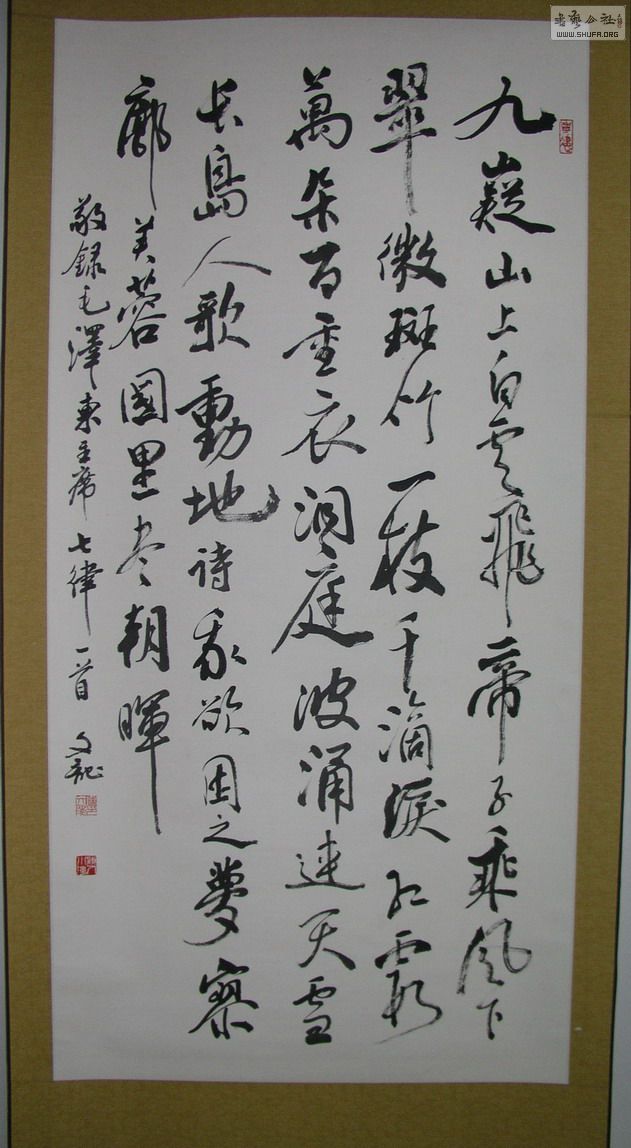 九嶷山上白云飛帝子乘风下
翠微斑竹一枝千滴淚红霞
萬朵百重衣洞庭波涌連天雪
长島人歌動地诗我欲因之夢寥
廓芙蓉國里尽朝暉
敬録毛澤東主席七律一首 文龍
書藝公社
WWW.SHUFA.ORG